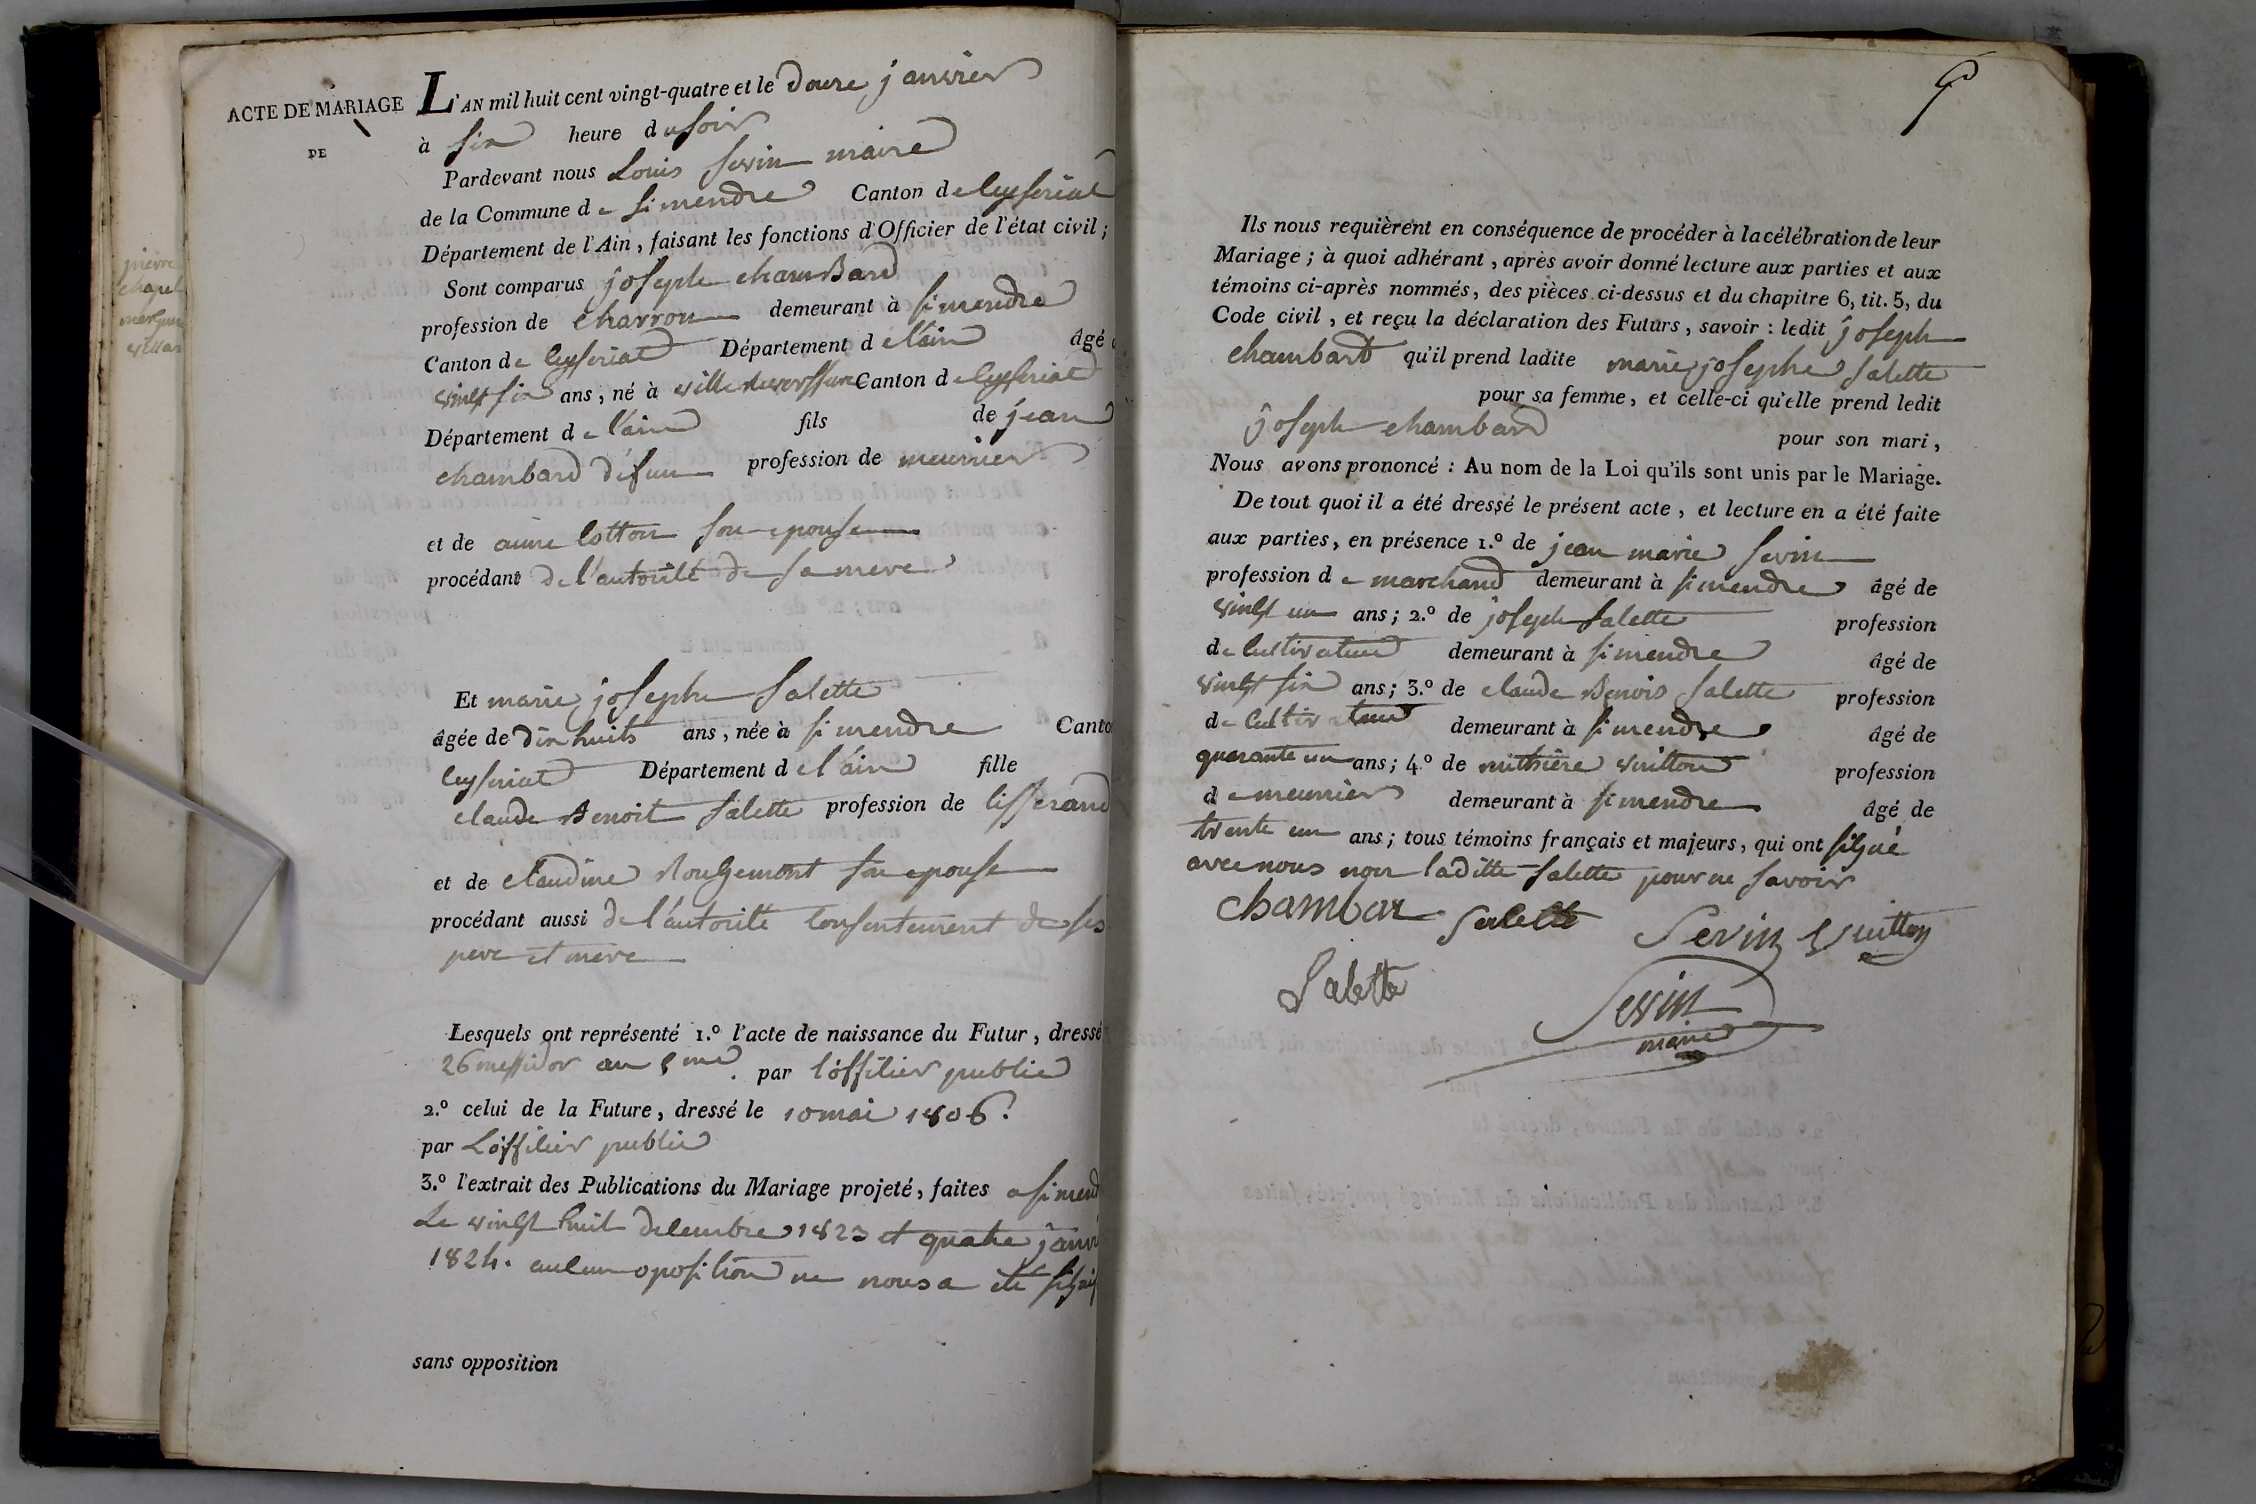 ACTE DE MARIAGE
DE
L'AN mil huit cent vingt-quatre et le douze janvier
à six heure du soir
Pardevant nous Louis Sevin maire
de la Commune de simendre Canton de Ceyseriat
Département de l'Ain, faisant les fonctions d'Officier de l'état civil;
Sont comparus joseph chamBard
profession de charron demeurant à simendre
Canton de Ceyseriat Département de l'ain âgé
vingt six ans, né à Canton de Ceyseriat
Département de l'ain fils de jean
chambard défun profession de meunier
et de cotton son epouse
procédant de l'autorité de sa mere
Et marie josephe Salette
âgée de dix huits ans, née à simendre Canto
Ceyseriat Département de l'ain fille
claude Benoit Salette profession de tisserand
et de claudine Rougemont son epouse
procédant aussi de l'autorité consentement de ses
pere et mere
Lesquels ont représenté 1.º l'acte de naissance du Futur, dressé
26 messidor an 5me. par l'officier public
2.º celui de la Future, dressé le 10 mai 1806.
par L'officier public
3.º l'extrait des Publications du Mariage projeté, faites a simend
Le vingt huit decembre 1823 et quatre janvi
1824. aucun oposition ne nous a été signif
sans opposition
pierre
chapel
margue
villar
9
Ils nous requièrent en conséquence de procéder à la célébration de leur
Mariage; à quoi adhérant, après avoir donné lecture aux parties et aux
témoins ci-après nommés, des pièces ci-dessus et du chapitre 6, tit. 5, du
Code civil, et reçu la déclaration des Futurs, savoir: ledit joseph
chambard qu'il prend ladite marie josephe Salette
pour sa femme, et celle-ci qu'elle prend ledit
joseph chambard pour son mari,
Nous avons prononcé: Au nom de la Loi qu'ils sont unis par le Mariage.
De tout quoi il a été dressé le présent acte, et lecture en a été faite
aux parties, en présence 1.º de jean marie Sevin
profession de marchand demeurant à simendre âgé de
vingt un ans; 2.º de joseph Salette profession
de Cultivateur demeurant à simendre âgé de
vingt six ans; 3.º de claude Benois Salette profession
de Cultivateur demeurant à simendre âgé de
quarante un ans; 4.º de vuitton profession
de meunier demeurant à simendre âgé de
trente un ans; tous témoins français et majeurs, qui ont signé
avec nous non laditte Salette pour ne savoir
chambar Salette Sevin Vuitton
Salette Sevin
maire